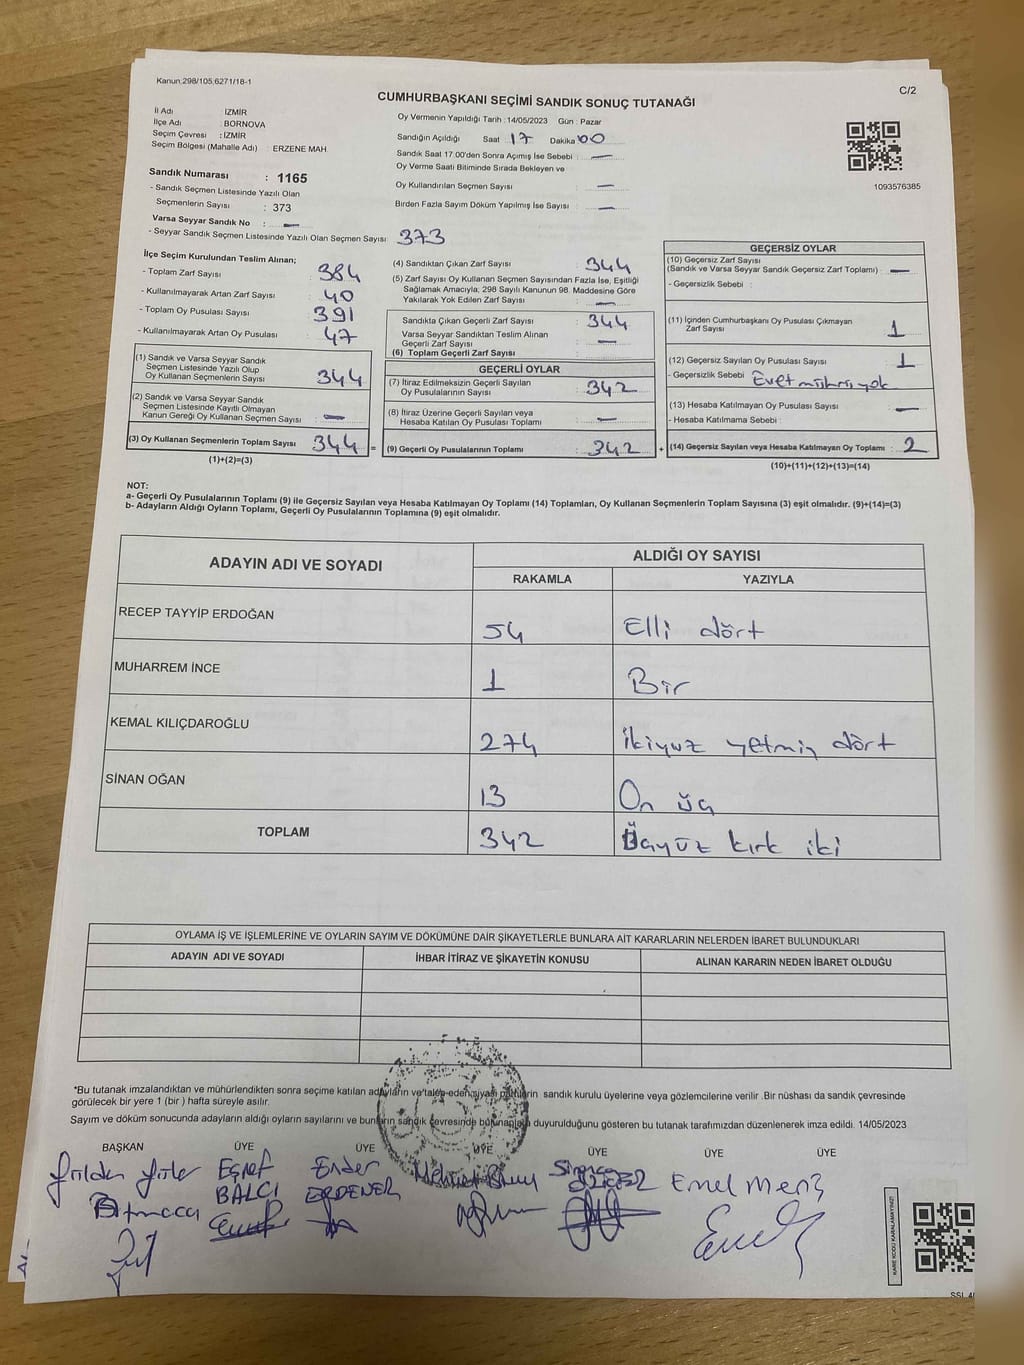 Kanun:298/105,6271/18-1
C/2
CUMHURBAŞKANI SEÇİMİ SANDIK SONUÇ TUTANAĞI
İl Adı : İZMİR
İlçe Adı : BORNOVA
Seçim Çevresi : İZMİR
Seçim Bölgesi (Mahalle Adı) : ERZENE MAH.
Oy Vermenin Yapıldığı Tarih : 14/05/2023 Gün : Pazar
Sandığın Açıldığı Saat 17 Dakika 00
Sandık Saat 17.00'den Sonra Açımış İse Sebebi : —
Oy Verme Saati Bitiminde Sırada Bekleyen ve
Oy Kullandırılan Seçmen Sayısı : —
Birden Fazla Sayım Döküm Yapılmış İse Sayısı : —
1093576385
Sandık Numarası : 1165
- Sandık Seçmen Listesinde Yazılı Olan
Seçmenlerin Sayısı : 373
Varsa Seyyar Sandık No : —
- Seyyar Sandık Seçmen Listesinde Yazılı Olan Seçmen Sayısı : 373
İlçe Seçim Kurulundan Teslim Alınan;
- Toplam Zarf Sayısı : 384
- Kullanılmayarak Artan Zarf Sayısı : 40
- Toplam Oy Pusulası Sayısı : 391
- Kullanılmayarak Artan Oy Pusulası : 47
(1) Sandık ve Varsa Seyyar Sandık
Seçmen Listesinde Yazılı Olup
Oy Kullanan Seçmenlerin Sayısı : 344
(2) Sandık ve Varsa Seyyar Sandık
Seçmen Listesinde Kayıtlı Olmayan
Kanun Gereği Oy Kullanan Seçmen Sayısı : —
(3) Oy Kullanan Seçmenlerin Toplam Sayısı : 344 =
(1)+(2)=(3)
(4) Sandıktan Çıkan Zarf Sayısı : 344
(5) Zarf Sayısı Oy Kullanan Seçmen Sayısından Fazla İse, Eşitliği
Sağlamak Amacıyla; 298 Sayılı Kanunun 98. Maddesine Göre
Yakılarak Yok Edilen Zarf Sayısı : —
Sandıkta Çıkan Geçerli Zarf Sayısı : 344
Varsa Seyyar Sandıktan Teslim Alınan
Geçerli Zarf Sayısı : —
(6) Toplam Geçerli Zarf Sayısı :
GEÇERLİ OYLAR
(7) İtiraz Edilmeksizin Geçerli Sayılan
Oy Pusulalarının Sayısı : 342
(8) İtiraz Üzerine Geçerli Sayılan veya
Hesaba Katılan Oy Pusulası Toplamı : —
(9) Geçerli Oy Pusulalarının Toplamı : 342 +
GEÇERSİZ OYLAR
(10) Geçersiz Zarf Sayısı
(Sandık ve Varsa Seyyar Sandık Geçersiz Zarf Toplamı) : —
- Geçersizlik Sebebi :
(11) İçinden Cumhurbaşkanı Oy Pusulası Çıkmayan
Zarf Sayısı : 1
(12) Geçersiz Sayılan Oy Pusulası Sayısı : 1
- Geçersizlik Sebebi : Evet mührü yok
(13) Hesaba Katılmayan Oy Pusulası Sayısı : —
- Hesaba Katılmama Sebebi :
(14) Geçersiz Sayılan veya Hesaba Katılmayan Oy Toplamı : 2
(10)+(11)+(12)+(13)=(14)
NOT:
a- Geçerli Oy Pusulalarının Toplamı (9) ile Geçersiz Sayılan veya Hesaba Katılmayan Oy Toplamı (14) Toplamları, Oy Kullanan Seçmenlerin Toplam Sayısına (3) eşit olmalıdır. (9)+(14)=(3)
b- Adayların Aldığı Oyların Toplamı, Geçerli Oy Pusulalarının Toplamına (9) eşit olmalıdır.
ADAYIN ADI VE SOYADI
ALDIĞI OY SAYISI
RAKAMLA YAZIYLA
RECEP TAYYİP ERDOĞAN 54 Elli dört
MUHARREM İNCE 1 Bir
KEMAL KILIÇDAROĞLU 274 ikiyüz yetmiş dört
SİNAN OĞAN 13 On üç
TOPLAM 342 Üçyüz kırk iki
OYLAMA İŞ VE İŞLEMLERİNE VE OYLARIN SAYIM VE DÖKÜMÜNE DAİR ŞİKAYETLERLE BUNLARA AİT KARARLARIN NELERDEN İBARET BULUNDUKLARI
ADAYIN ADI VE SOYADI İHBAR İTİRAZ VE ŞİKAYETİN KONUSU ALINAN KARARIN NEDEN İBARET OLDUĞU
*Bu tutanak imzalandıktan ve mühürlendikten sonra seçime katılan adayların ve talep eden siyasi partilerin sandık kurulu üyelerine veya gözlemcilerine verilir .Bir nüshası da sandık çevresinde
görülecek bir yere 1 (bir ) hafta süreyle asılır.
Sayım ve döküm sonucunda adayların aldığı oyların sayılarını ve bunların sandık çevresinde bulunanlara duyurulduğunu gösteren bu tutanak tarafımızdan düzenlenerek imza edildi. 14/05/2023
BAŞKAN ÜYE ÜYE ÜYE ÜYE ÜYE ÜYE
Eşref Ender Mehmet Emel
BALCI ERDENER
KARE KODU KARALAMAYINIZ!